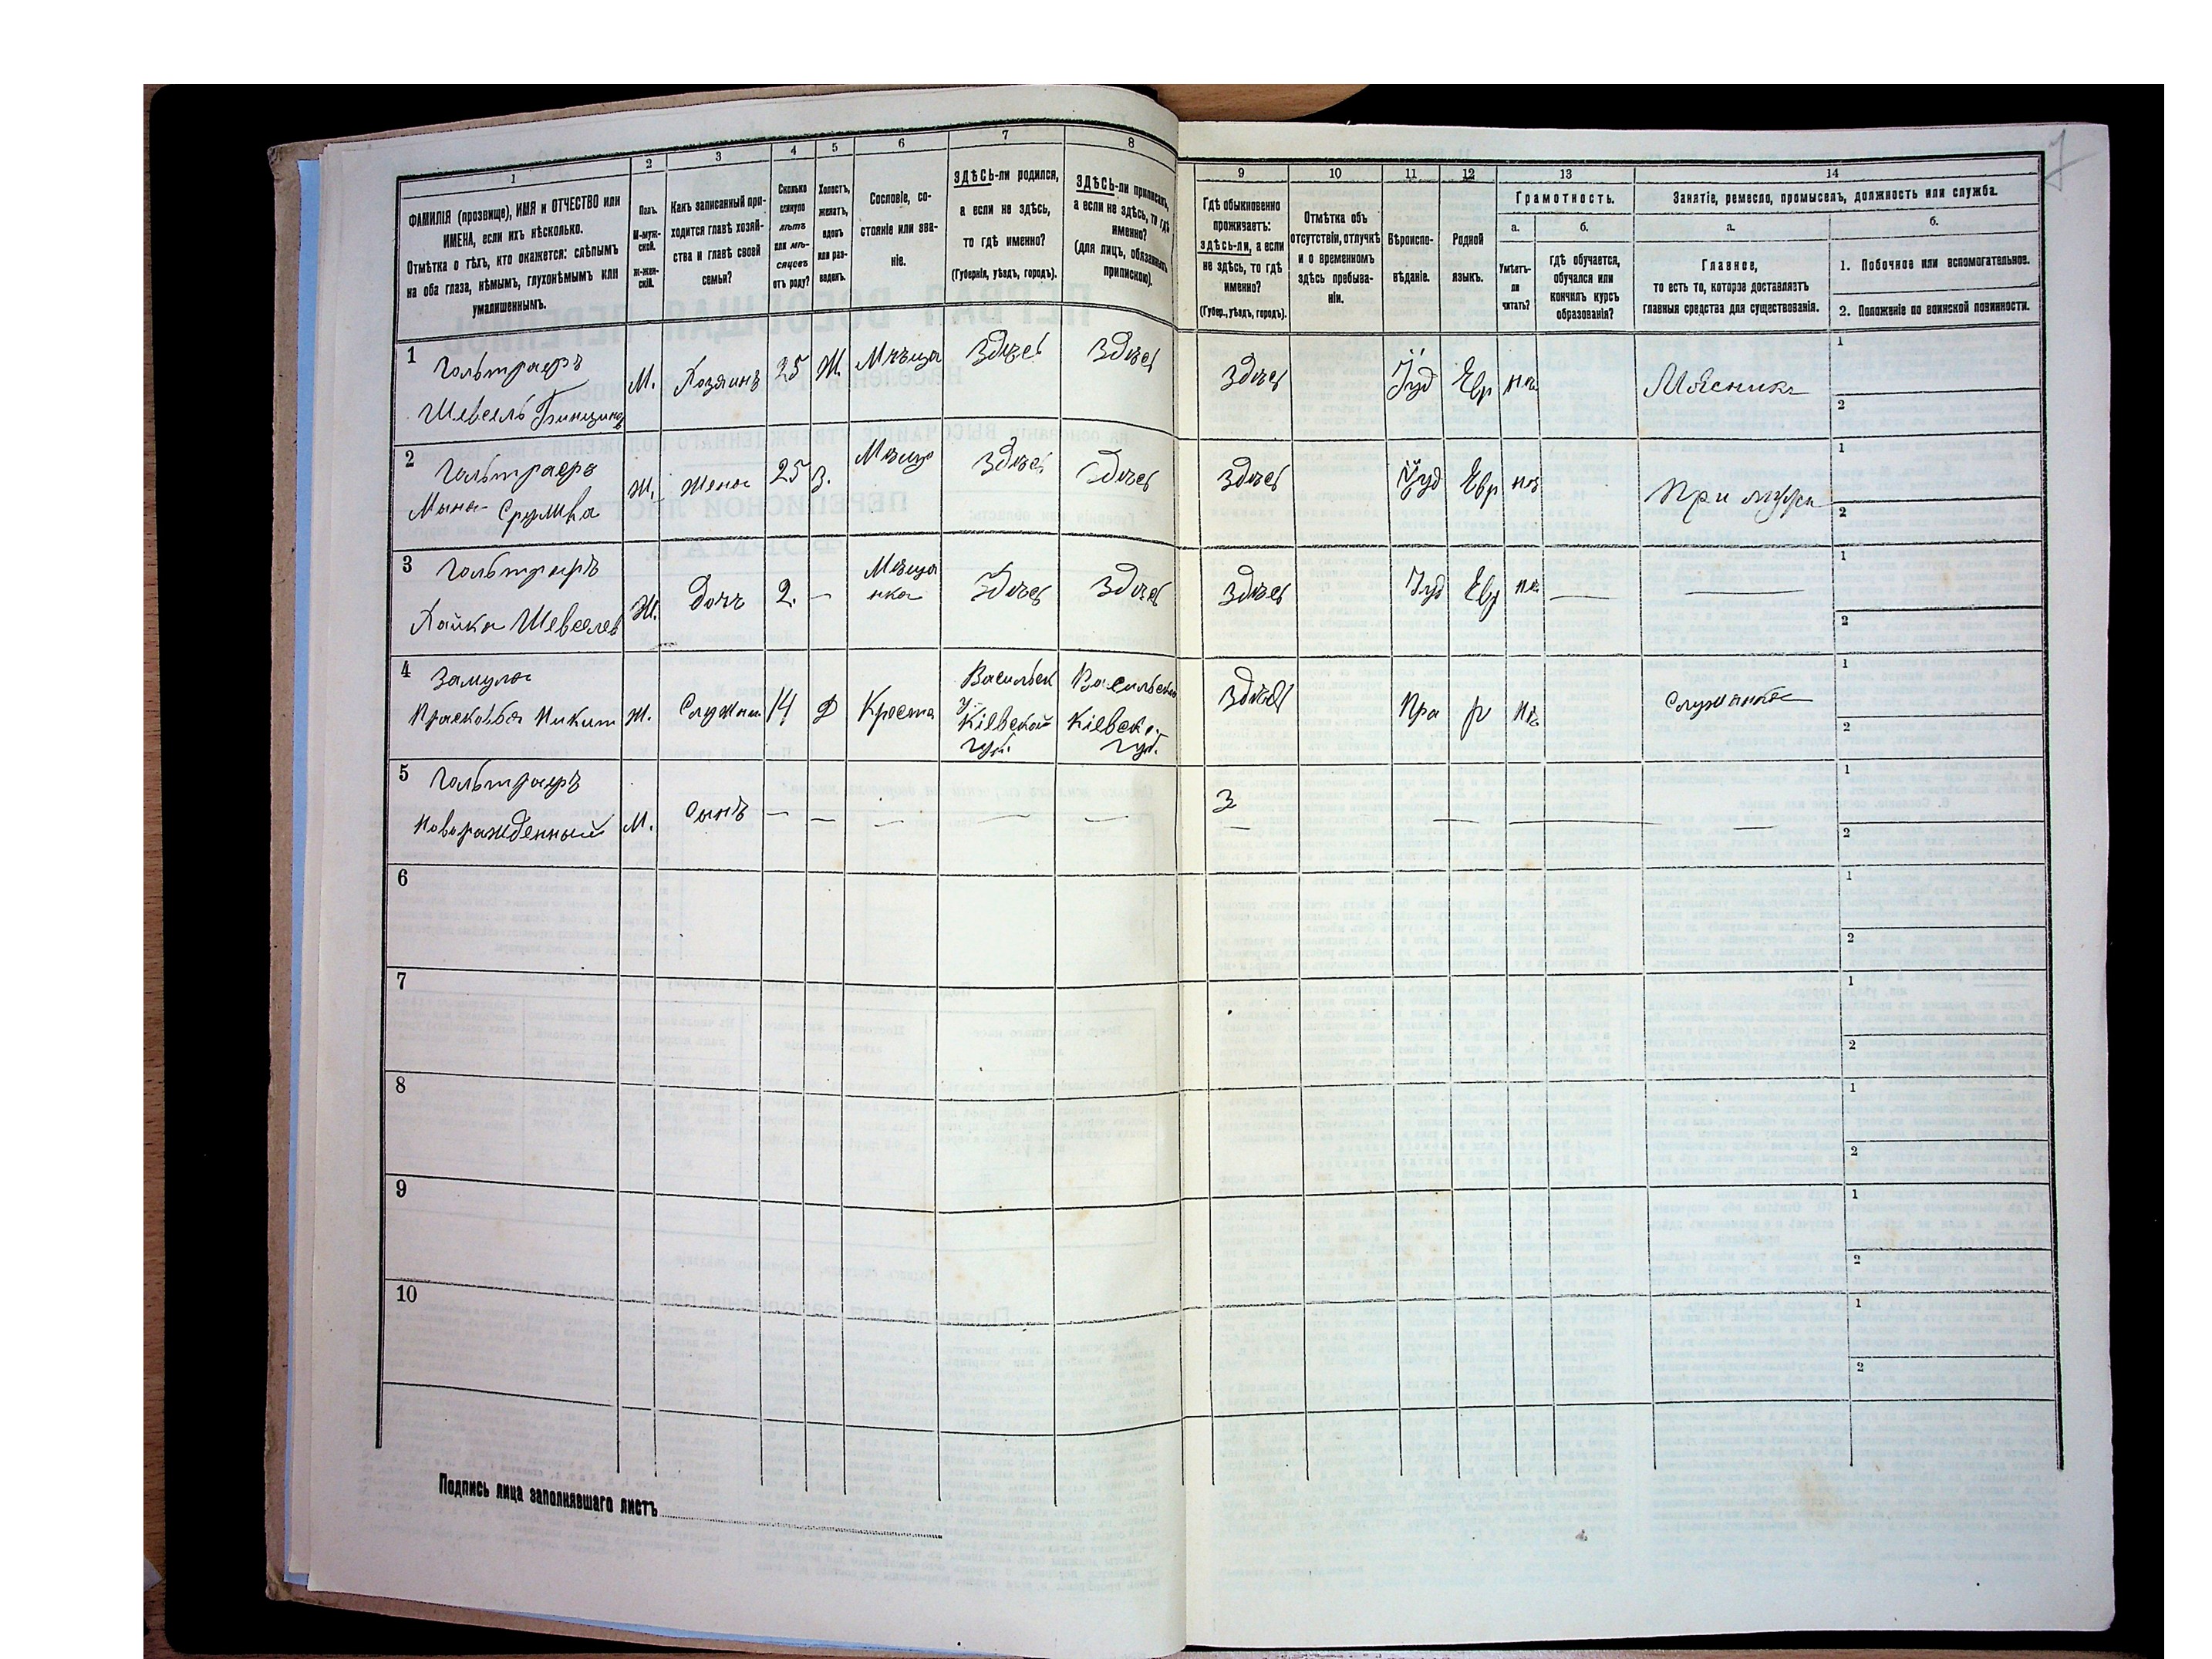 1
ФАМИЛІЯ (прозвище), ИМЯ и ОТЧЕСТВО или
ИМЕНА, если ихъ нѣсколько.
Отмѣтка о тѣхъ, кто окажется: слѣпымъ
на оба глаза, нѣмымъ, глухонѣмымъ или
умалишеннымъ.
2
Полъ.
М-муж-
ской.
ж-жен-
скій.
3
Какъ записанный при-
ходится главѣ хозяй-
ства и главѣ своей
семьи?
4
Сколько
минуло
лѣтъ
или мѣ-
сяцевъ
отъ роду?
5
Холостъ,
женатъ,
вдовъ
или раз-
веденъ.
6
Сословіе, со-
стояніе или зва-
ніе.
7
ЗДѢСЬ-ли родился,
а если не здѣсь,
то гдѣ именно?
(Губернія, уѣздъ, городъ).
8
ЗДѢСЬ-ли приписанъ,
а если не здѣсь, то гдѣ
именно?
(для лицъ, обязанныхъ
припискою).
9
Гдѣ обыкновенно
проживаетъ:
здѣсь-ли, а если
не здѣсь, то гдѣ
именно?
(Губер., уѣздъ, городъ).
10
Отмѣтка объ
отсутствіи, отлучкѣ
и о временномъ
здѣсь пребыва-
ніи.
11
Вѣроиспо-
вѣданіе.
12
Родной
языкъ.
13
Грамотность.
а.
Умѣетъ-
ли
читать?
б.
гдѣ обучается,
обучался или
кончилъ курсъ
образованія?
14
Занятіе, ремесло, промыселъ, должность или служба.
а.
Главное,
то есть то, которое доставляетъ
главныя средства для существованія.
б.
1. Побочное или вспомогательное.
2. Положеніе по воинской повинности.
7
1
Гольтраеръ
Шевсель
М.
Хозяинъ
25
Ж.
Мѣща
Здѣсь
Здѣсь
Здѣсь
Іуд
Евр
нѣ
Мясникъ
1
2
2
Гольтраеръ
Мына- Срулева
Ж.
Жена
25
З.
Мѣща
Здѣсь
Здѣсь
Здѣсь
Іуд
Евр
нѣ
При мужѣ
1
2
3
Гольтраеръ
Хайка Шевселев
Ж.
Дочь
2.
—
Мѣща
нка
Здѣсь
Здѣсь
Здѣсь
Іуд
Евр
нѣ
—
—
1
2
4
Замула
Прасковья Никит
Ж.
Служан
14
Д
Креста
Васильев
у.
Кіевской
губ.
Васильев
Кіевск.
губ.
Здѣсь
Пра
р
нѣ
Служанка
1
2
5
Гольтраеръ
Новорожденный
М.
Сынъ
—
—
—
—
—
З
—
—
—
—
1
2
6
1
2
7
1
2
8
1
2
9
1
2
10
1
2
Подпись лица заполнявшаго листъ